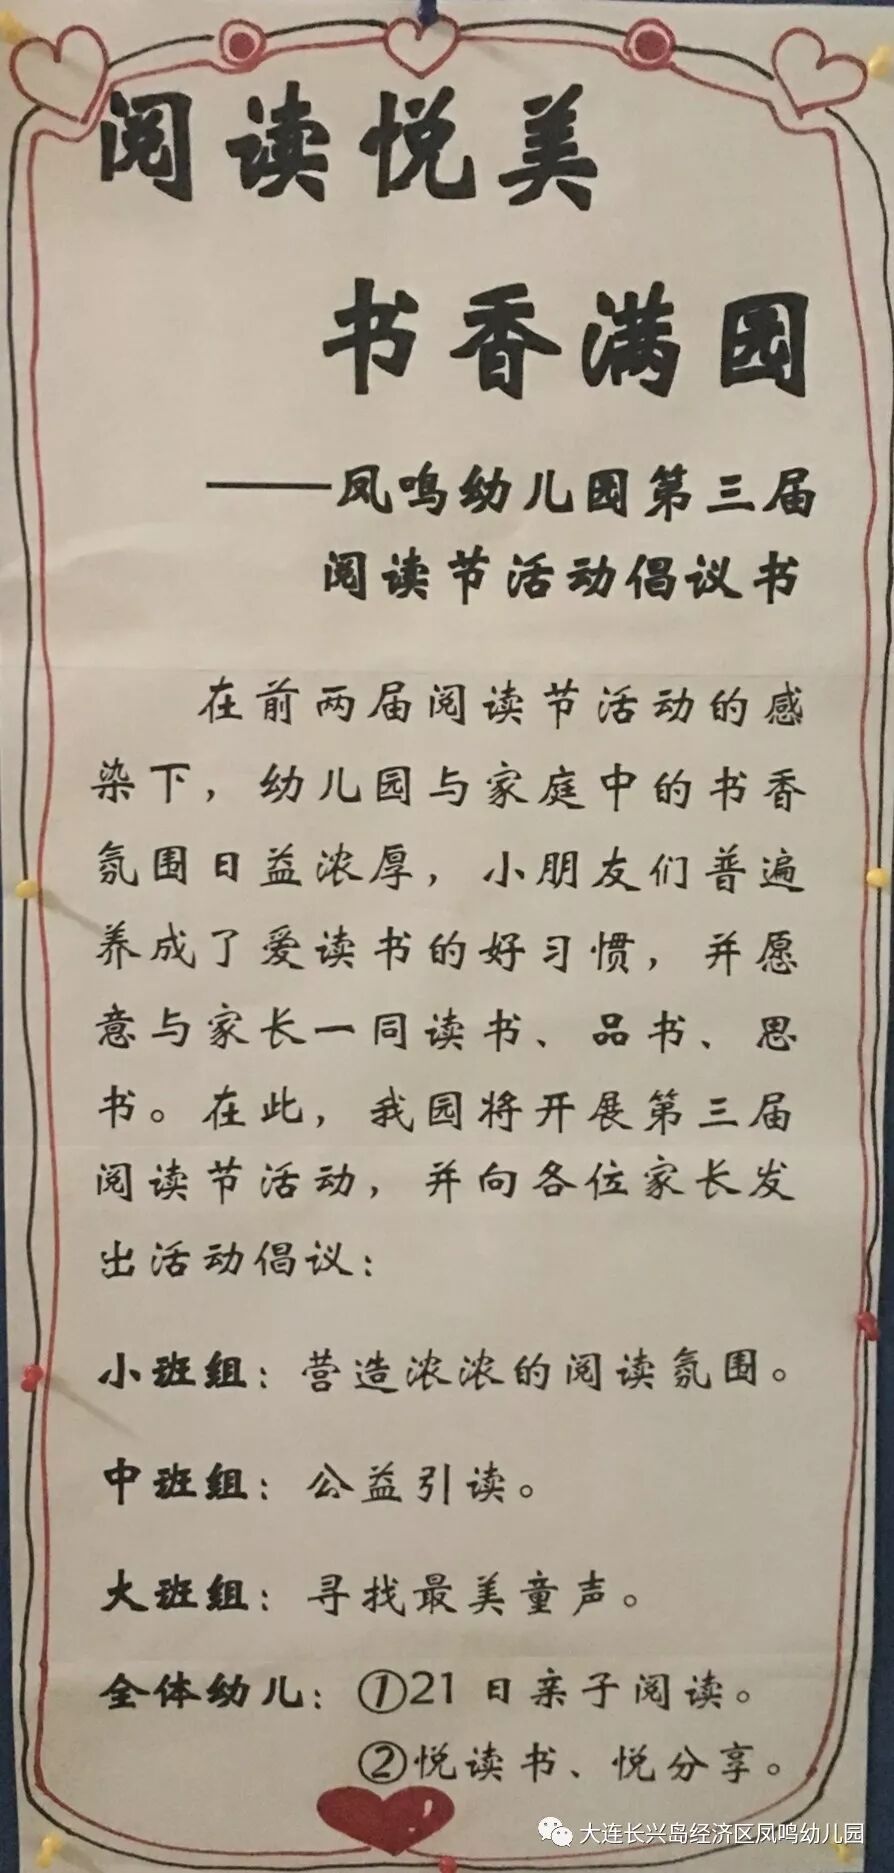 阅读悦美
书香满园
——凤鸣幼儿园第三届
阅读节活动倡议书
在前两届阅读节活动的感
染下，幼儿园与家庭中的书香
氛围日益浓厚，小朋友们普遍
养成了爱读书的好习惯，并愿
意与家长一同读书、品书、思
书。在此，我园将开展第三届
阅读节活动，并向各位家长发
出活动倡议：
小班组：营造浓浓的阅读氛围。
中班组：公益引读。
大班组：寻找最美童声。
全体幼儿：①21日亲子阅读。
②悦读书、悦分享。
大连长兴岛经济区凤鸣幼儿园